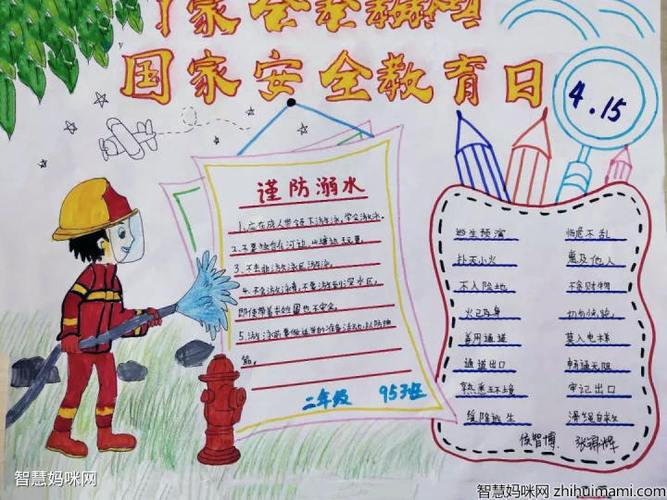 国家安全教育日
4.15
谨防溺水
1、应在成人带领下游泳，学会游泳。
2、不要独自在河边、山塘边玩耍。
3、不去非游泳区游泳。
4、不会游泳者，不要游到深水区，
即使带着救生圈也不安全。
5、游泳前要做适当的准备活动，以防抽
筋。
二年级 953班
逃生预演 临危不乱
扑灭小火 惠及他人
不入险地 不贪财物
火已及身 切勿惊跑
善用通道 莫入电梯
通道出口 畅通无阻
熟悉环境 牢记出口
缓降逃生 滑绳自救
侯智博
智慧妈咪网
智慧妈咪网 zhihuimami.com